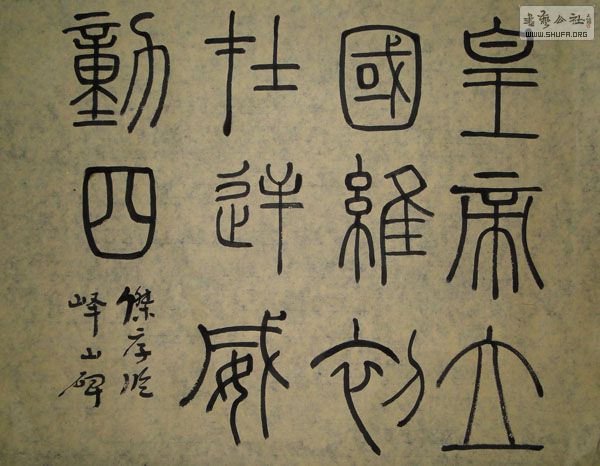 書藝公社
WWW.SHUFA.ORG
皇帝立
國維初
在逆威
動四
傑序临
峄山碑